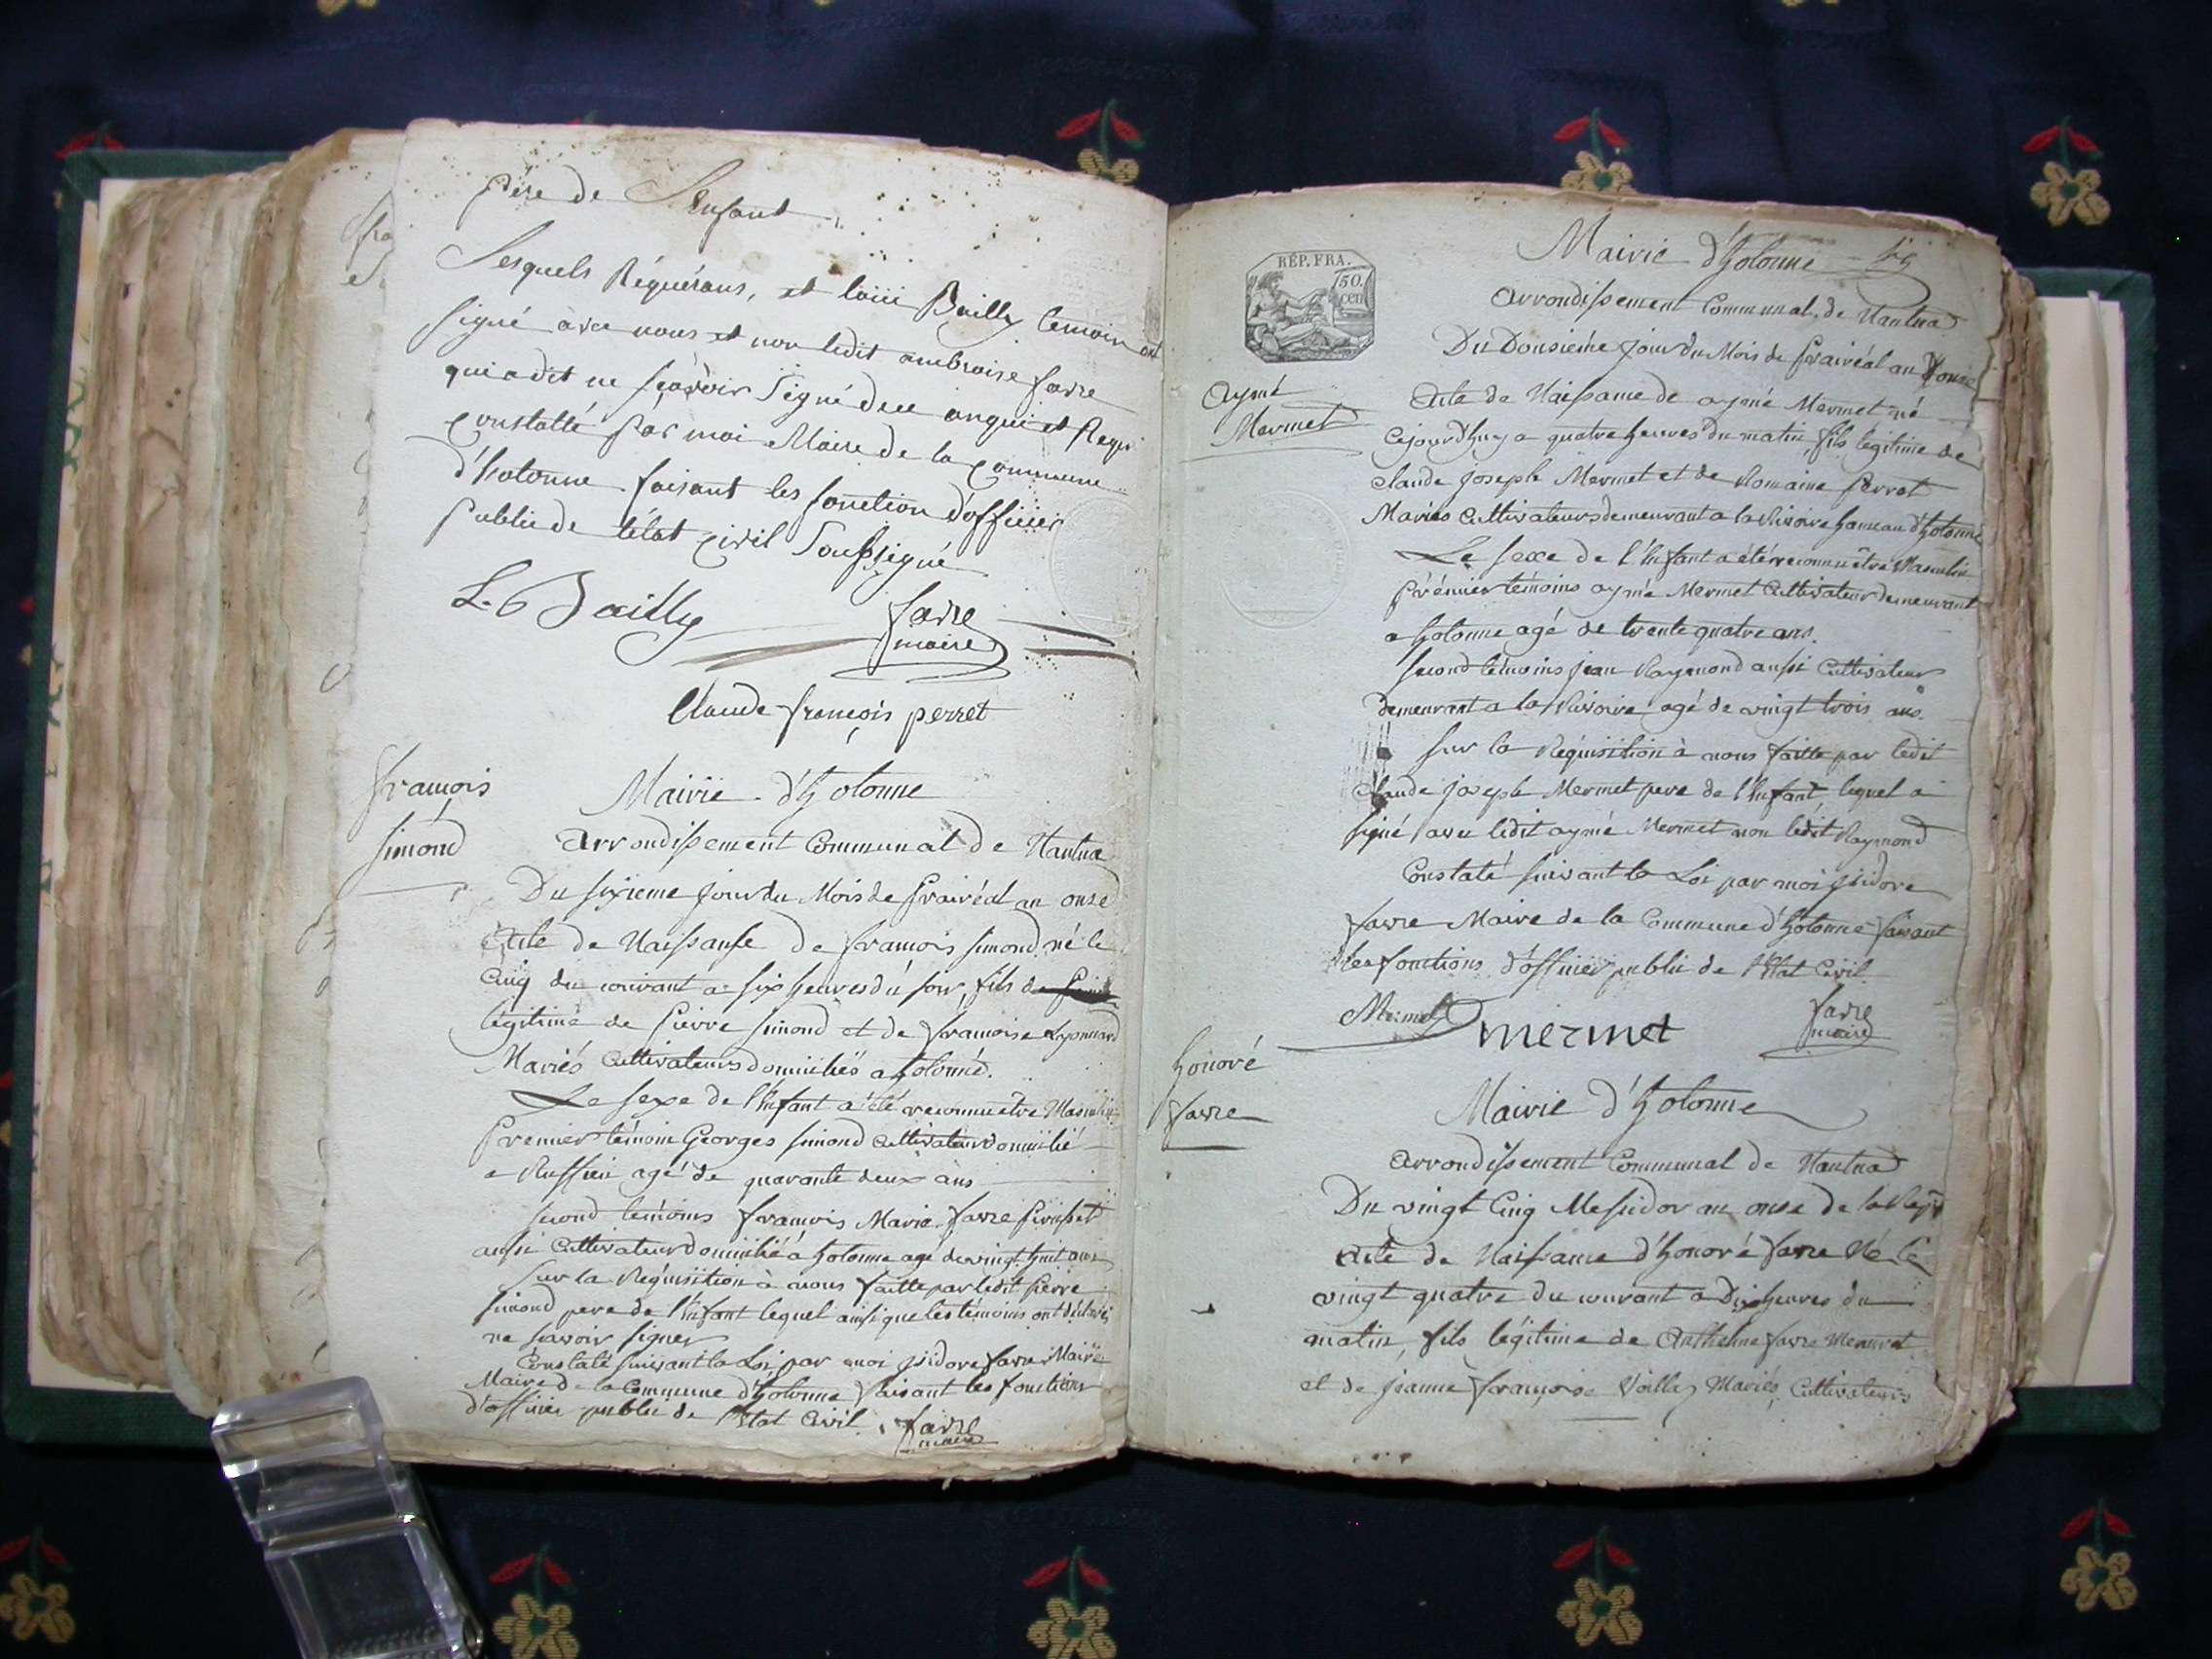 père de L'enfant
Lesquels Réquérans, et loüii Bailly temoin ont
signé avec nous et non ledit ambroise favre
qui a dit ne sçavoir signé de ce enquis et Requi
constatté par moi Maire de la commune
d'hotonne faisant les fonction d'officier
public de l'état civil Soussigné
L. Bailly
favre
maire
Claude françois perret
françois
simond
Mairie d'hotonne
Arrondissement Communal de Nantua
Du sixieme jour du Mois de Prairéal an onze
Acte de Naissanse de francois simond né le
Cinq du courant a six heures du soir, fils de
légitime de Pierre simond et de francoise Lyonnard
Mariés Cultivateurs domiciliés a hotonne.
Le sexe de l'Enfant a été reconnu être Masculin
Premier témoin Georges simond Cultivateur domicilié
a Ruffieu agé de quarante deux ans
second témoins francois Marie favre
aussi Cultivateur domicilié a hotonne agé de vingt huit ans
Sur la Réquisition à nous faitte par ledit Pierre
simond pere de l'Enfant lequel ainsi que les témoins ont déclaré
ne savoir signer
Constaté suivant la Loi par moi jsidore favre Maire
Maire de la Commune d'hotonne faisant les fonctions
d'officier public de l'Etat Civil.
favre
maire
REP. FRA.
50.
cen.
Mairie d'hotonne
Arrondissement Communal de Nantua
Du Dousiéme jour du Mois de Prairéal an Honze
Aymé
Mermet
Acte de Naissance de aymé Mermet né
cejourdhuy a quatre heures du matin, fils légitime de
claude joseph Mermet et de Romaine Perrot
Mariés Cultivateurs demeurant a la Rivoire hameau d'hotonne
Le sexe de l'Enfant a été reconnu être Masculin
Prémier témoins aymé Mermet Cultivateur demeurant
a hotonne agé de trente quatre ans.
second témoins jean Raymond aussi Cultivateur
demeurant a la Rivoire agé de vingt trois ans.
sur la Réquisition à nous faitte par ledit
Claude joseph Mermet pere de l'Enfant lequel a
signé avec ledit aymé Mermet non ledit Raymond
Constaté suivant la Loi par moi jsidore
favre Maire de la Commune d'hotonne faisant
les fonctions d'officier public de l'Etat Civil
Mermet
mermet
favre
maire
honoré
favre
Mairie d'hotonne
Arrondissement Communal de Nantua
Du vingt Cinq Messidor an onze de la Rep
Acte de Naissance d'honoré favre Né le
vingt quatre du courant a Dix heures du
matin, fils légitime de Anthelme favre
et de jeanne françoise Mariés, Cultivateurs